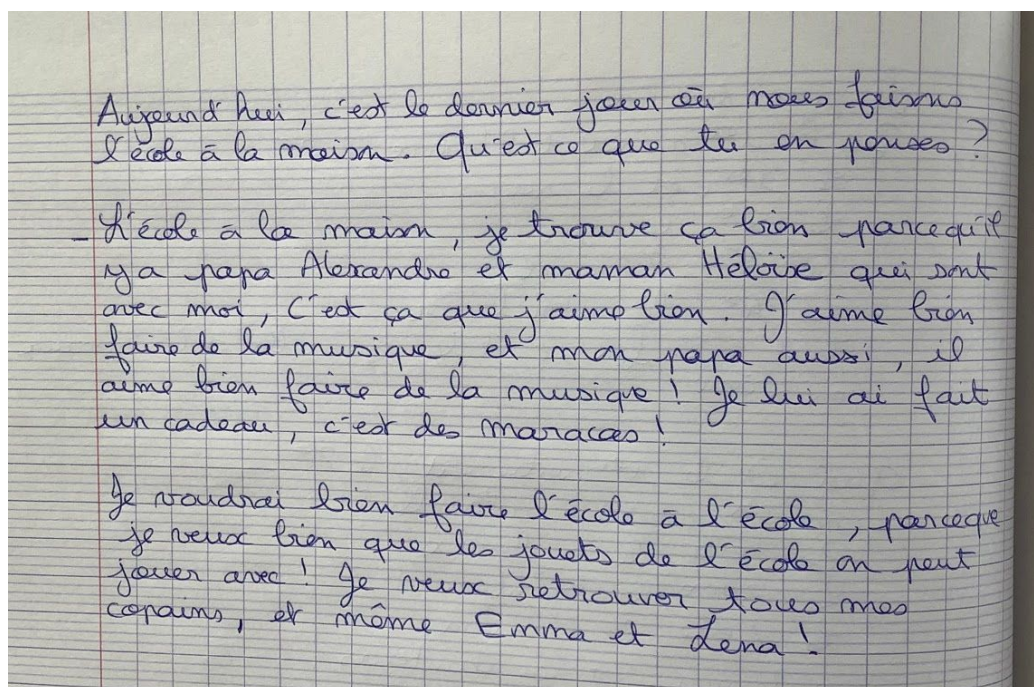 Aujourd'hui, c'est le dernier jour où nous faisons
l'école à la maison. Qu'est ce que tu en penses ?
- L'école à la maison, je trouve ça bien parcequ'il
y a papa Alexandre et maman Héloïse qui sont
avec moi, C'est ça que j'aime bien. J'aime bien
faire de la musique, et mon papa aussi, il
aime bien faire de la musique ! Je lui ai fait
un cadeau, c'est des maracas !
Je voudrai bien faire l'école à l'école, parceque
je veux bien que les jouets de l'école on peut
jouer avec ! Je veux retrouver tous mes
copains, et même Emma et Lena !